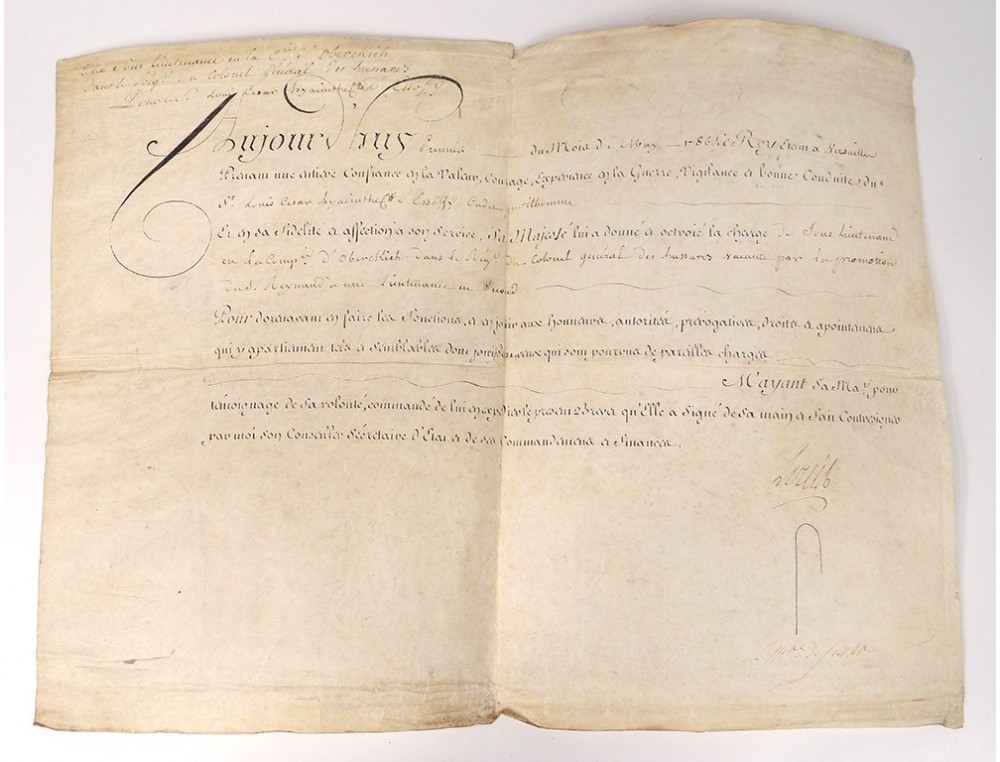 Sous Lieutenance en la Comp.e d'Oberckich
dans le Reg.t du Colonel Général des hussards
Louis Cesar hyacinthe
Aujourd'huy Premier du Mois de May 1786 Le Roy Etant à Versailles
Prenant une entiere Confiance en la Valeur, Courage, Experience en la Guerre, Vigilance et bonne Conduite du
S.r Louis Cesar hyacinthe C.te Cadet gentilhomme
Et en sa Fidelité et affection à son service, Sa Majesté lui a donné et octroié la charge de Sous Lieutenant
en la Comp.e d'Oberckich dans le Reg.t du Colonel général des hussards vacante par la promotion
du S. Reynaud a une Lieutenance en Second
Pour dorenavant en faire les Fonctions, et en jouir aux honneurs, autorités, prérogatives, droits et apointemens
qui y apartiennent tels et semblables dont jouissent ceux qui sont pourvus de pareilles charges
M'ayant Sa Ma.té pour
témoignage de sa volonté, commandé de lui en expedier le present Brevet qu'Elle a Signé de sa main et fait Contresigner
par moi son Conseiller Sécretaire d'Etat et de ses Commandemens et Finances.
Louis